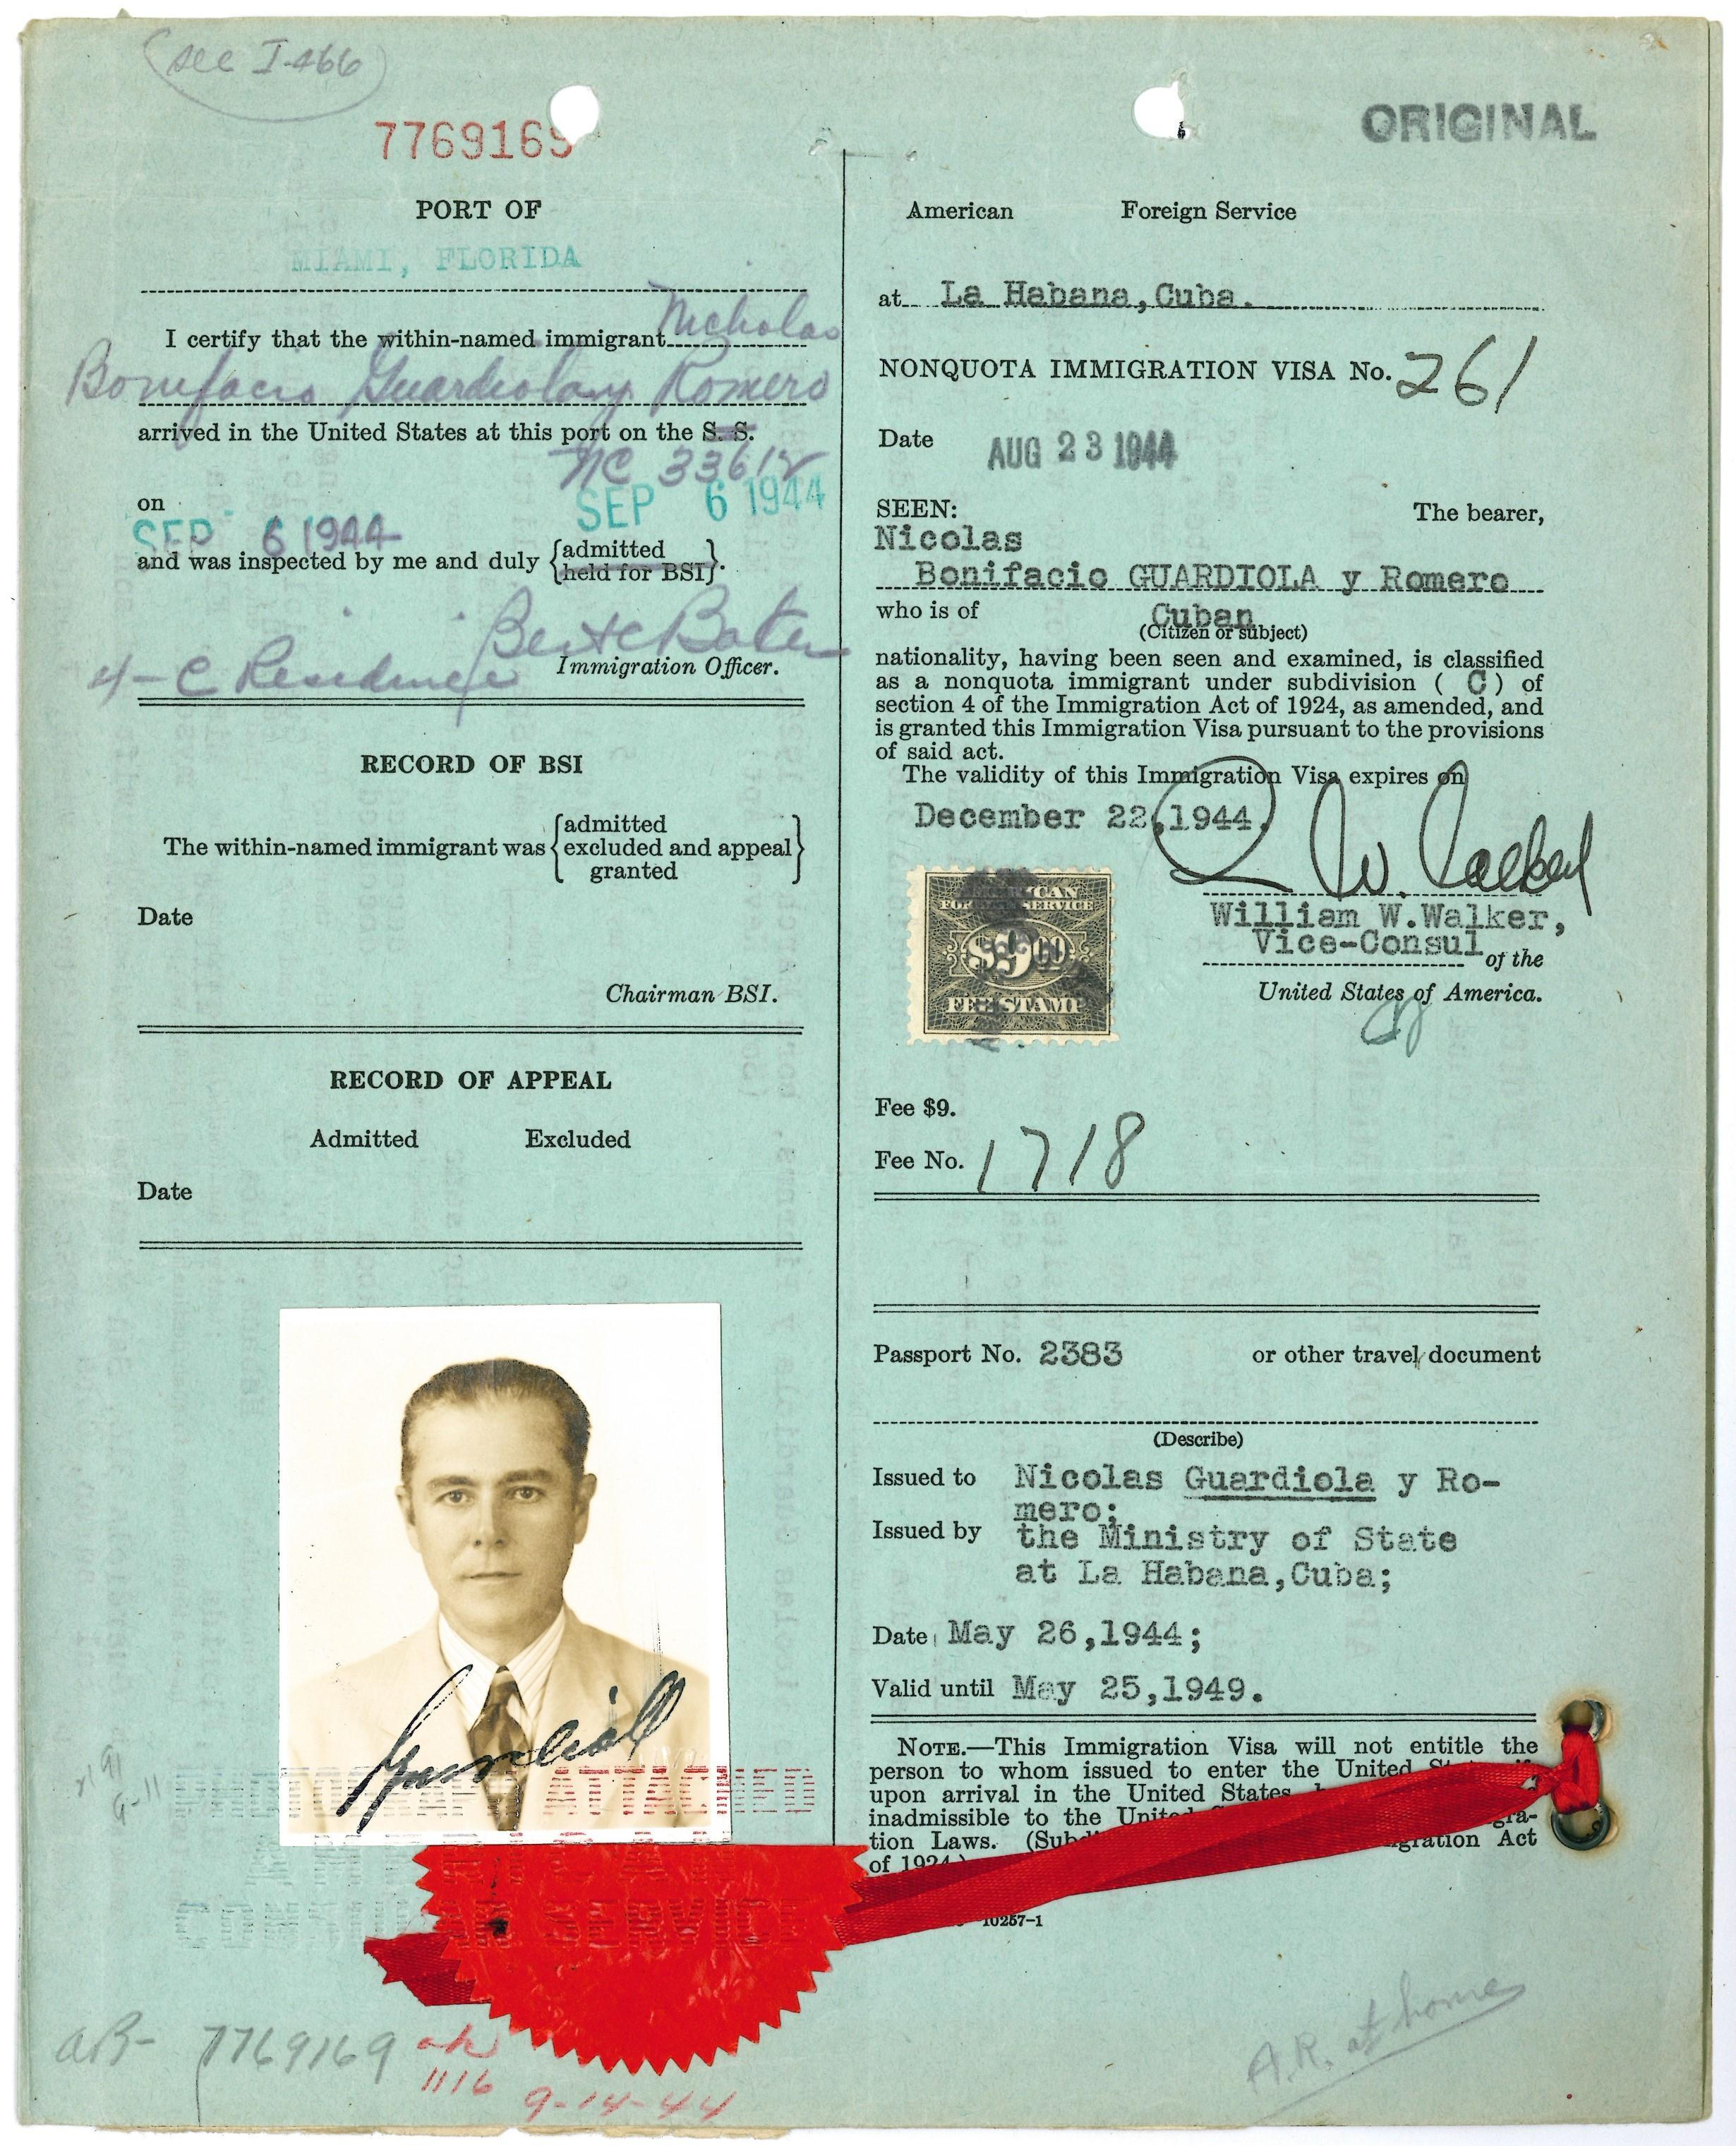 see I-466
7769169
ORIGINAL
PORT OF
MIAMI, FLORIDA
I certify that the within-named immigrant Nicholas
Bonifacio Guardiola y Romero
arrived in the United States at this port on the S. S.
NC 33612
on
SEP 6 1944
SEP 6 1944
and was inspected by me and duly {admitted
held for BSI}.
Bert C Baker
4-C Residence
Immigration Officer.
RECORD OF BSI
The within-named immigrant was {admitted
excluded and appeal
granted}
Date
Chairman BSI.
RECORD OF APPEAL
Admitted Excluded
Date
Guardiola
PHOTOGRAPH ATTACHED
AMERICAN
CONSULAR SERVICE
7769169
1116
9-14-44
American Foreign Service
at La Habana, Cuba.
NONQUOTA IMMIGRATION VISA No. 261
Date AUG 23 1944
SEEN: The bearer,
Nicolas
Bonifacio GUARDIOLA y Romero
who is of Cuban
(Citizen or subject)
nationality, having been seen and examined, is classified
as a nonquota immigrant under subdivision ( C ) of
section 4 of the Immigration Act of 1924, as amended, and
is granted this Immigration Visa pursuant to the provisions
of said act.
The validity of this Immigration Visa expires on
December 22, 1944.
W. W. Walker
William W. Walker,
Vice-Consul of the
United States of America.
AMERICAN
FOREIGN SERVICE
$9.00
FEE STAMP
Fee $9.
Fee No. 1718
Passport No. 2383 or other travel document
(Describe)
Issued to Nicolas Guardiola y Ro-
mero;
Issued by the Ministry of State
at La Habana, Cuba;
Date May 26, 1944;
Valid until May 25, 1949.
NOTE.—This Immigration Visa will not entitle the
person to whom issued to enter the United
upon arrival in the United States,
inadmissible to the
tion Laws. Act
of 1924.)
10257-1
A.R. at home